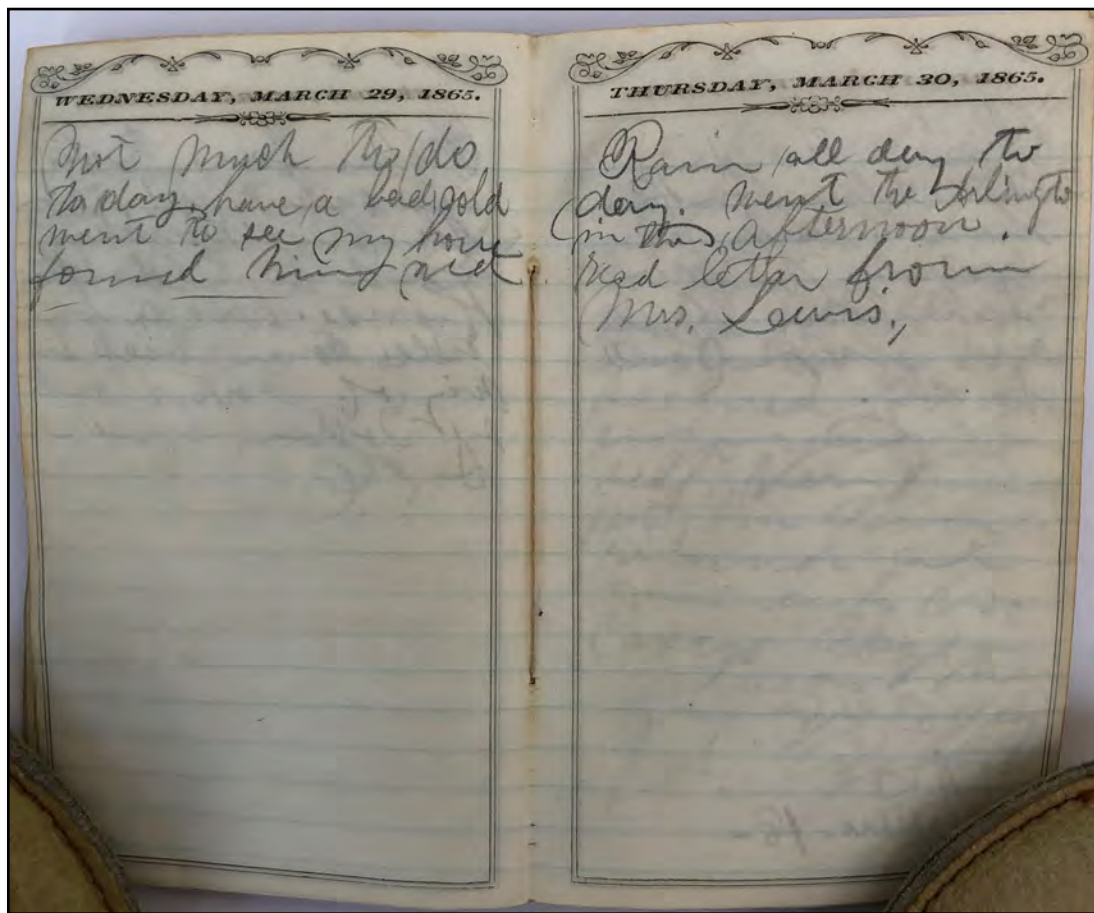 WEDNESDAY, MARCH 29, 1865.
Not much to do
to day, have a bad cold
went to see my horse
found him
THURSDAY, MARCH 30, 1865.
Rain all day to
day. Went to Arlington
in the afternoon.
letter from
Mrs. Lewis,